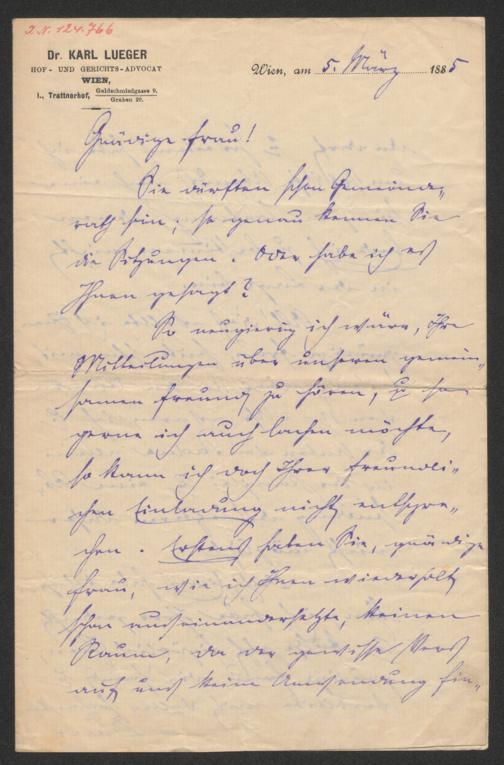 I.N. 124.766
Dr. KARL LUEGER
HOF- UND GERICHTS-ADVOCAT
WIEN,
I., Trattnerhof, Goldschmiedgasse 9.
Graben 29.
Wien, am 5. März 1885
Gnädige Frau!
Sie dürften schon Gemeinde-
rath sein; so genau kennen Sie
die Sitzungen. Oder habe ich es
Ihnen gesagt?
So neugierig ich wäre, Ihre
Mitteilungen über unseren gemein-
samen Freund zu hören, u so
gerne ich auch lachen möchte,
so kann ich doch Ihrer freundli-
chen Einladung nicht entspre-
chen. Erstens haben Sie, gnädige
Frau, wie ich Ihnen wiederholt
schon auseinandersetzte, keinen
Raum, da der gewisse Vers
auf uns keine Anwendung fin-